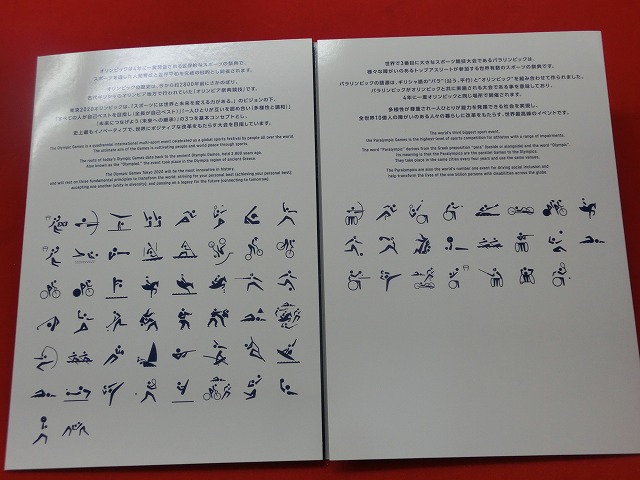 オリンピックは4年に一度開催される世界的なスポーツの祭典で、
スポーツを通した人間育成と世界平和を究極の目的とし開催されます。
オリンピックの歴史は、今から約2800年前にさかのぼり、
古代ギリシャのオリンピア地方で行われていた「オリンピア祭典競技」です。
東京2020オリンピックは、「スポーツには世界と未来を変える力がある。」のビジョンの下、
「すべての人が自己ベストを目指し（全員が自己ベスト）」「一人ひとりが互いを認め合い（多様性と調和）」
「未来につなげよう（未来への継承）」の3つを基本コンセプトとし、
史上最もイノベーティブで、世界にポジティブな改革をもたらす大会を目指しています。
The Olympic Games is a quadrennial international multi-sport event celebrated as a global sports festival by people all over the world.
The ultimate aim of the Games is cultivating people and world peace through sports.
The roots of today's Olympic Games date back to the ancient Olympic Games, held 2,800 years ago.
Also known as the "Olympiad," the event took place in the Olympia region of ancient Greece.
The Olympic Games Tokyo 2020 will be the most innovative in history,
and will rest on three fundamental principles to transform the world: striving for your personal best (achieving your personal best);
accepting one another (unity in diversity); and passing on a legacy for the future (connecting to tomorrow).
世界で3番目に大きなスポーツ競技大会であるパラリンピックは、
様々な障がいのあるトップアスリートが参加する世界有数のスポーツの祭典です。
パラリンピックの語源は、ギリシャ語の“パラ”（沿う、平行）と“オリンピック”を組み合わせて作られました。
パラリンピックがオリンピックと共に実施される大会である事を意味しており、
4年に一度オリンピックと同じ場所で開催されます。
多様性が尊重され一人ひとりが能力を発揮できる社会を実現し、
全世界10億人の障がいのある人々の暮らしに改革をもたらす、世界最高峰のイベントです。
The world's third biggest sport event,
the Paralympic Games is the highest-level of sports competition for athletes with a range of impairments.
The word "Paralympic" derives from the Greek preposition "para" (beside or alongside) and the word "Olympic".
Its meaning is that the Paralympics are the parallel Games to the Olympics.
They take place in the same cities every four years and use the same venues.
The Paralympics are also the world's number one event for driving social inclusion and
help transform the lives of the one billion persons with disabilities across the globe.